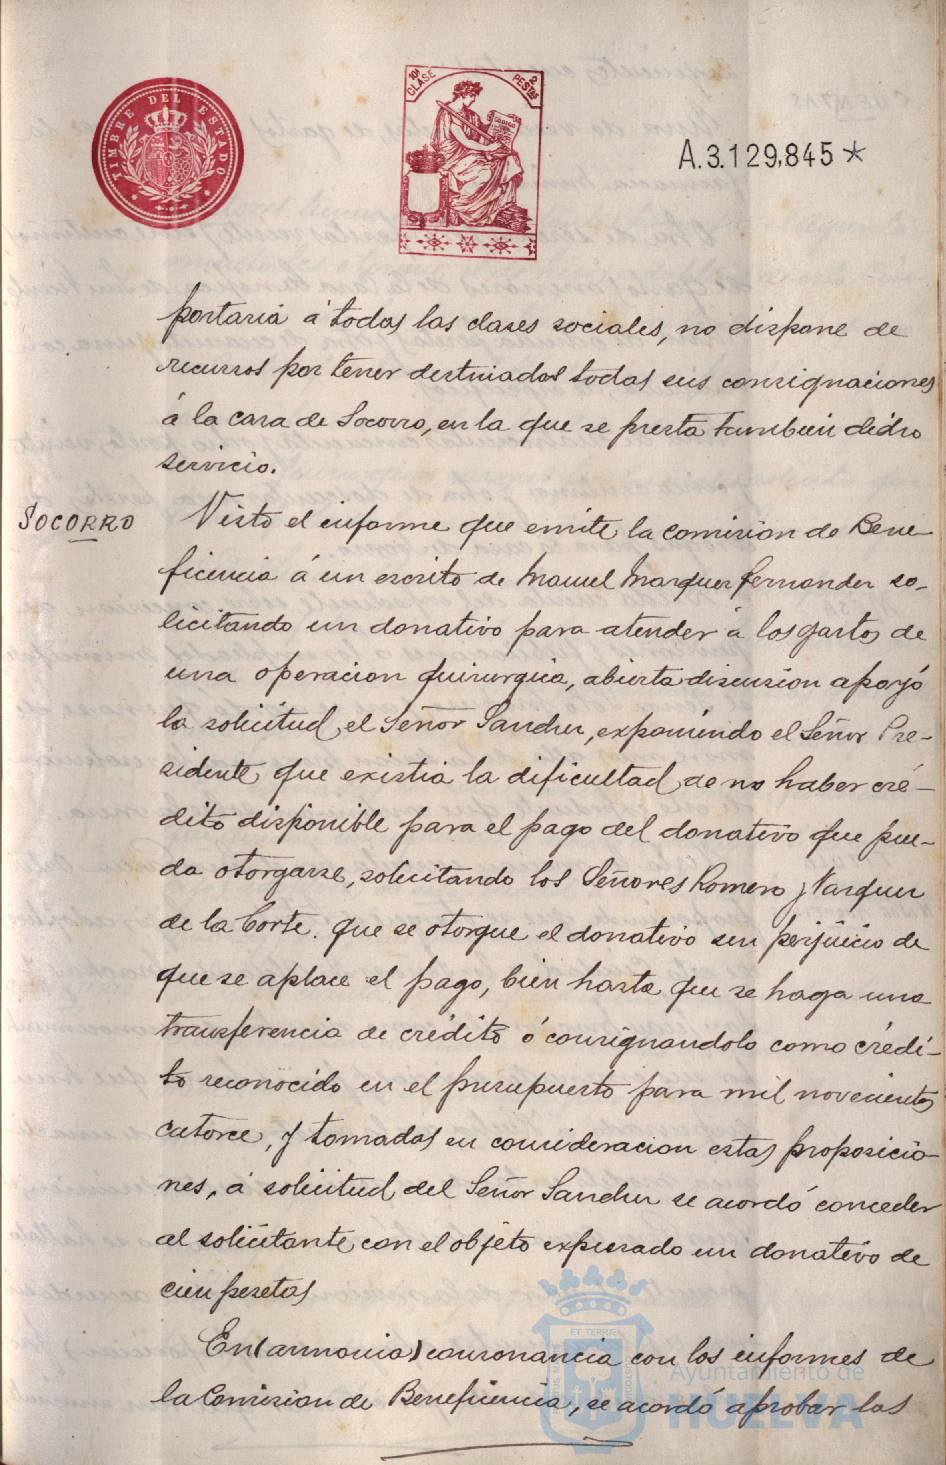 TIMBRE DEL ESTADO
10ª CLASE 2 PESTAS
A.3.129,845 *
portaria á todas las clases sociales, no dispone de
recursos por tener destinadas todas sus consignaciones
á la casa de Socorro, en la que se presta tambien dicho
servicio.
SOCORRO
Visto el informe que emite la comision de Bene-
ficencia á un escrito de Manuel Marquez Fernandez so-
licitando un donativo para atender á los gastos de
una operacion quirurgica, abierta discusion apoyó
la solicitud el Señor Sanchez, exponiendo el Señor Pre-
sidente que existia la dificultad de no haber cré-
dito disponible para el pago del donativo que pue-
da otorgarse, solicitando los Señores Romero y Vazquez
de la Corte. que se otorgue el donativo sin perjuicio de
que se aplace el pago, bien hasta que se haga una
transferencia de crédito ó consignandolo como crédi-
to reconocido en el presupuesto para mil novecientos
catorce, y tomadas en consideracion estas proposicio-
nes, á solicitud del Señor Sanchez se acordó conceder
al solicitante con el objeto expresado un donativo de
cien pesetas
En (armonia) consonancia con los informes de
la Comision de Beneficencia, se acordó aprobar las
Ayuntamiento de
HUELVA